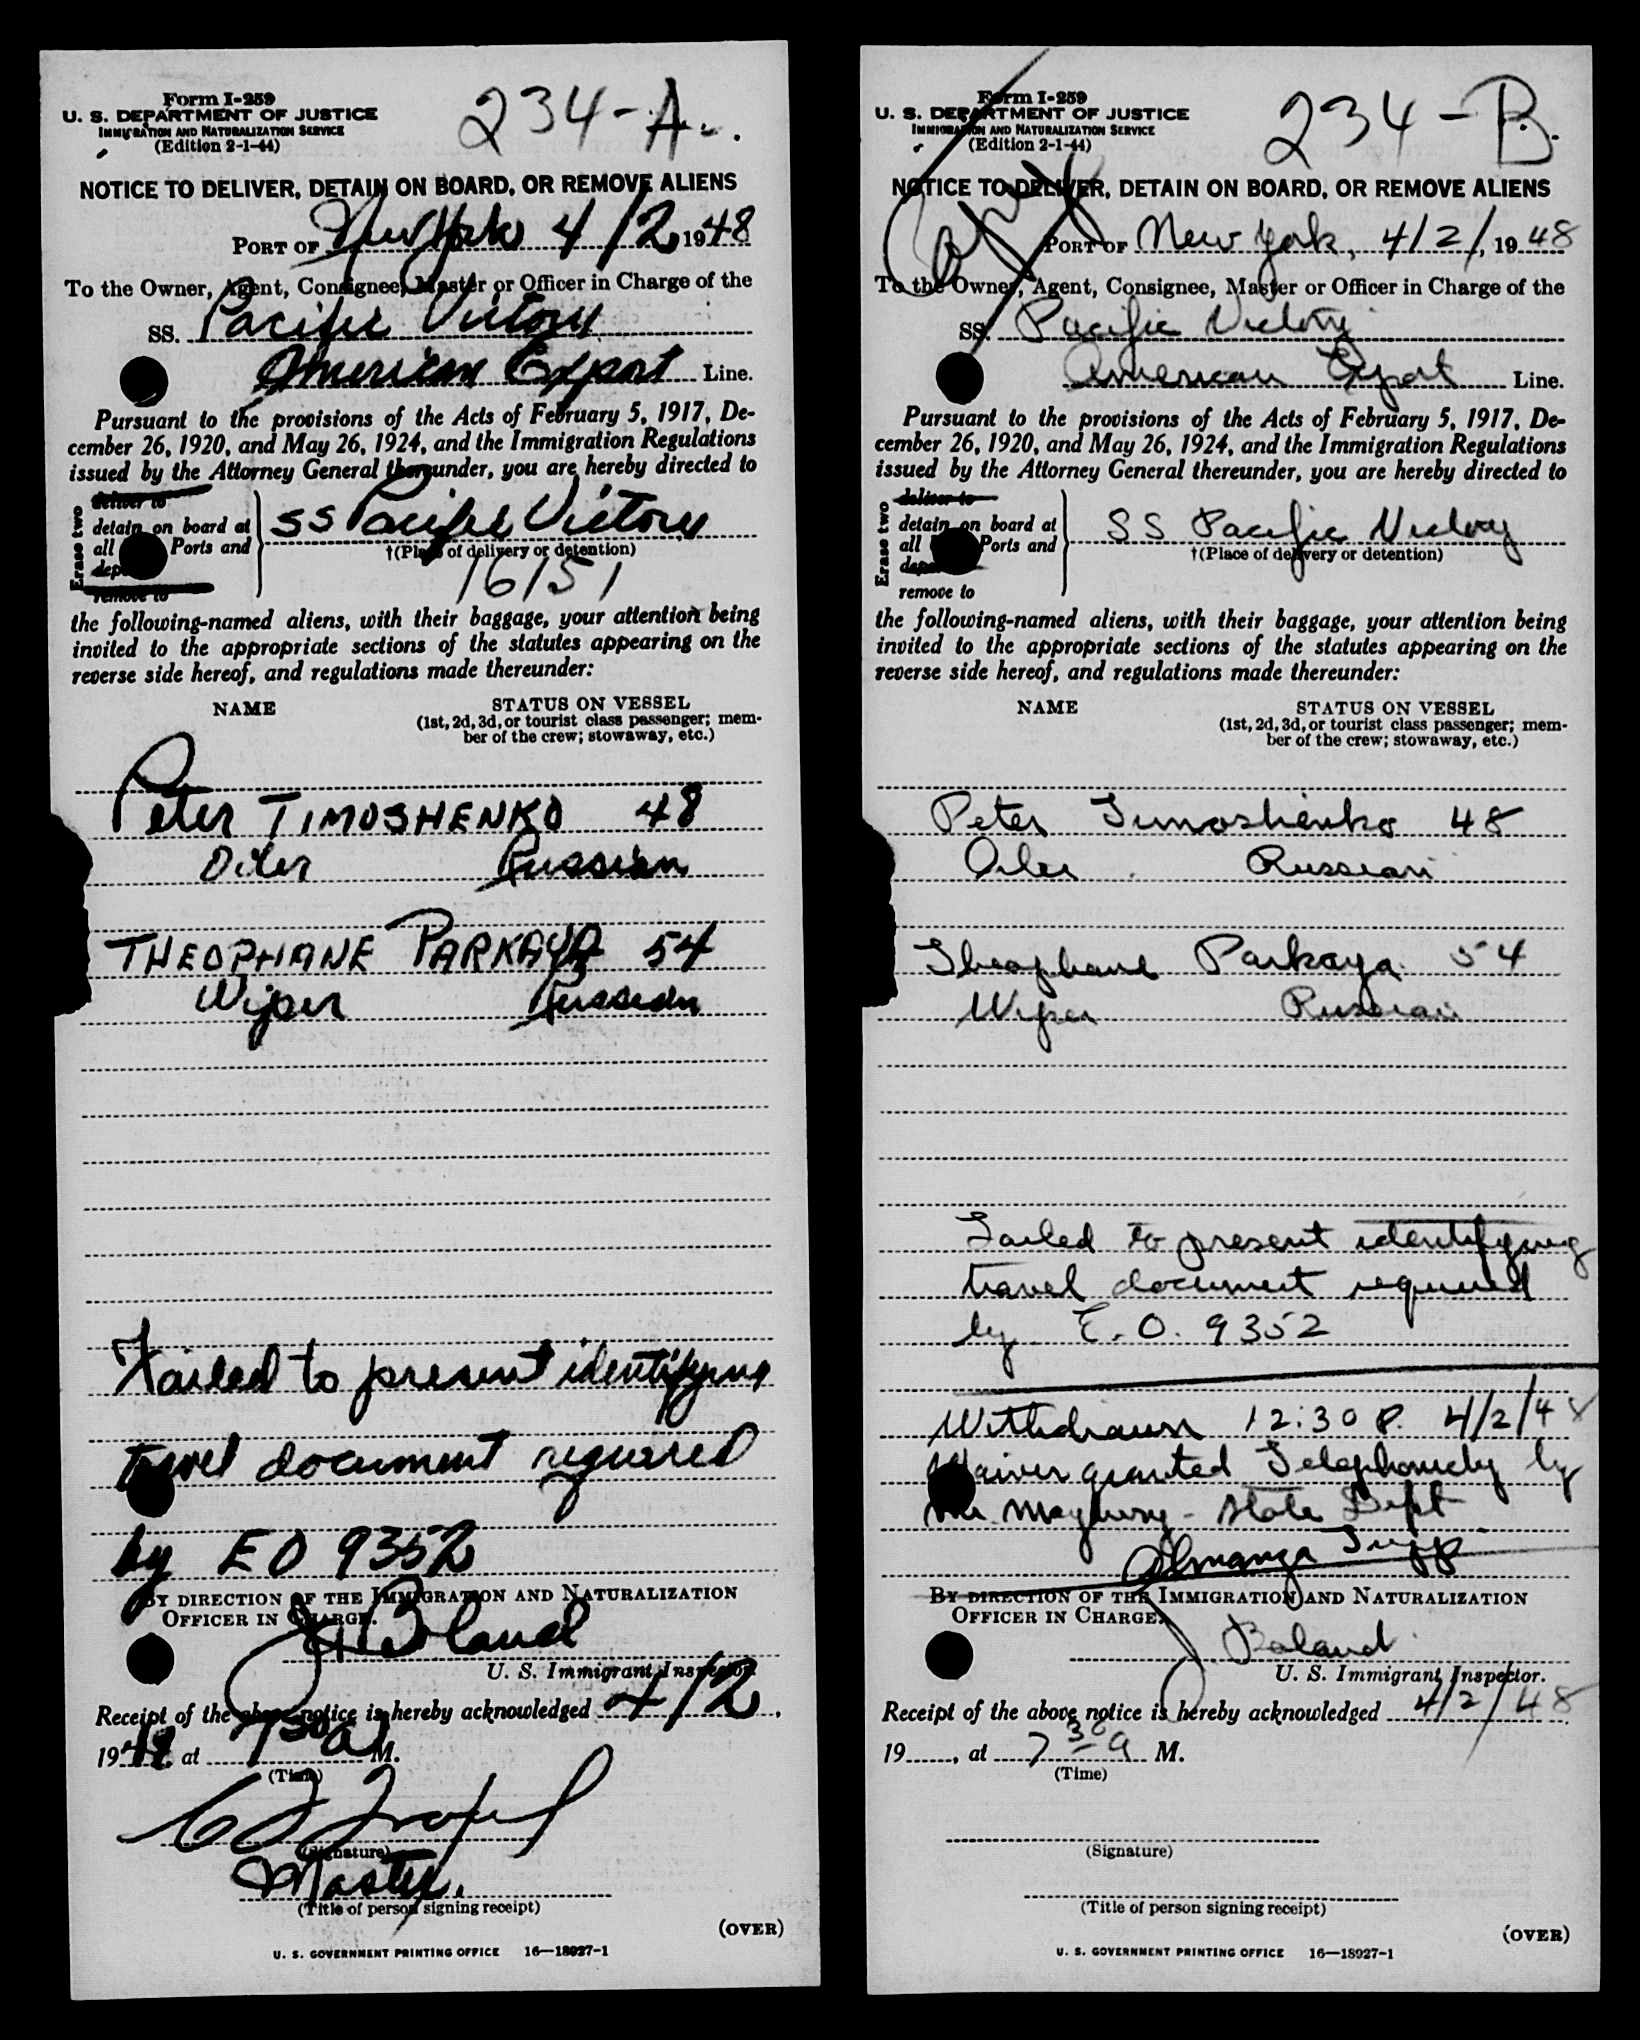 Form I-259
U. S. DEPARTMENT OF JUSTICE
IMMIGRATION AND NATURALIZATION SERVICE
(Edition 2-1-44)
234-A.
NOTICE TO DELIVER, DETAIN ON BOARD, OR REMOVE ALIENS
PORT OF New York 4/2 1948
To the Owner, Agent, Consignee, Master or Officer in Charge of the
SS. Pacific Victory
American Export Line.
Pursuant to the provisions of the Acts of February 5, 1917, De-
cember 26, 1920, and May 26, 1924, and the Immigration Regulations
issued by the Attorney General thereunder, you are hereby directed to
Erase two
deliver to
detain on board at
all Ports and
remove to
SS Pacific Victory
†(Place of delivery or detention)
16151
the following-named aliens, with their baggage, your attention being
invited to the appropriate sections of the statutes appearing on the
reverse side hereof, and regulations made thereunder:
NAME
STATUS ON VESSEL
(1st, 2d, 3d, or tourist class passenger; mem-
ber of the crew; stowaway, etc.)
Peter TIMOSHENKO 48
Oiler Russian
THEOPHANE PARKAYA 54
Wiper Russian
Failed to present identifying
travel document required
by E O 9352
BY DIRECTION OF THE IMMIGRATION AND NATURALIZATION
OFFICER IN CHARGE.
Boland
U. S. Immigrant Inspector.
Receipt of the above notice is hereby acknowledged 4/2,
1948 at 730 a M.
(Time)
(Signature)
Master.
(Title of person signing receipt)
(OVER)
U. S. GOVERNMENT PRINTING OFFICE 16—18927-1
Form I-259
U. S. DEPARTMENT OF JUSTICE
IMMIGRATION AND NATURALIZATION SERVICE
(Edition 2-1-44)
234-B.
NOTICE TO DELIVER, DETAIN ON BOARD, OR REMOVE ALIENS
PORT OF New York, 4/2/, 1948
To the Owner, Agent, Consignee, Master or Officer in Charge of the
SS. Pacific Victory
American Export Line.
Pursuant to the provisions of the Acts of February 5, 1917, De-
cember 26, 1920, and May 26, 1924, and the Immigration Regulations
issued by the Attorney General thereunder, you are hereby directed to
Erase two
deliver to
detain on board at
all Ports and
remove to
SS Pacific Victory
†(Place of delivery or detention)
the following-named aliens, with their baggage, your attention being
invited to the appropriate sections of the statutes appearing on the
reverse side hereof, and regulations made thereunder:
NAME
STATUS ON VESSEL
(1st, 2d, 3d, or tourist class passenger; mem-
ber of the crew; stowaway, etc.)
Peter Timoshenko 48
Oiler Russian
Theophane Parkaya 54
Wiper Russian
Failed to present identifying
travel document required
by E. O. 9352
Withdrawn 12:30 P. 4/2/48
Waiver granted Telephonicly by
Mr - State Dept
BY DIRECTION OF THE IMMIGRATION AND NATURALIZATION
OFFICER IN CHARGE.
Boland
U. S. Immigrant Inspector.
Receipt of the above notice is hereby acknowledged 4/2/48
19......, at 7 30 a M.
(Time)
(Signature)
(Title of person signing receipt)
(OVER)
U. S. GOVERNMENT PRINTING OFFICE 16—18927-1